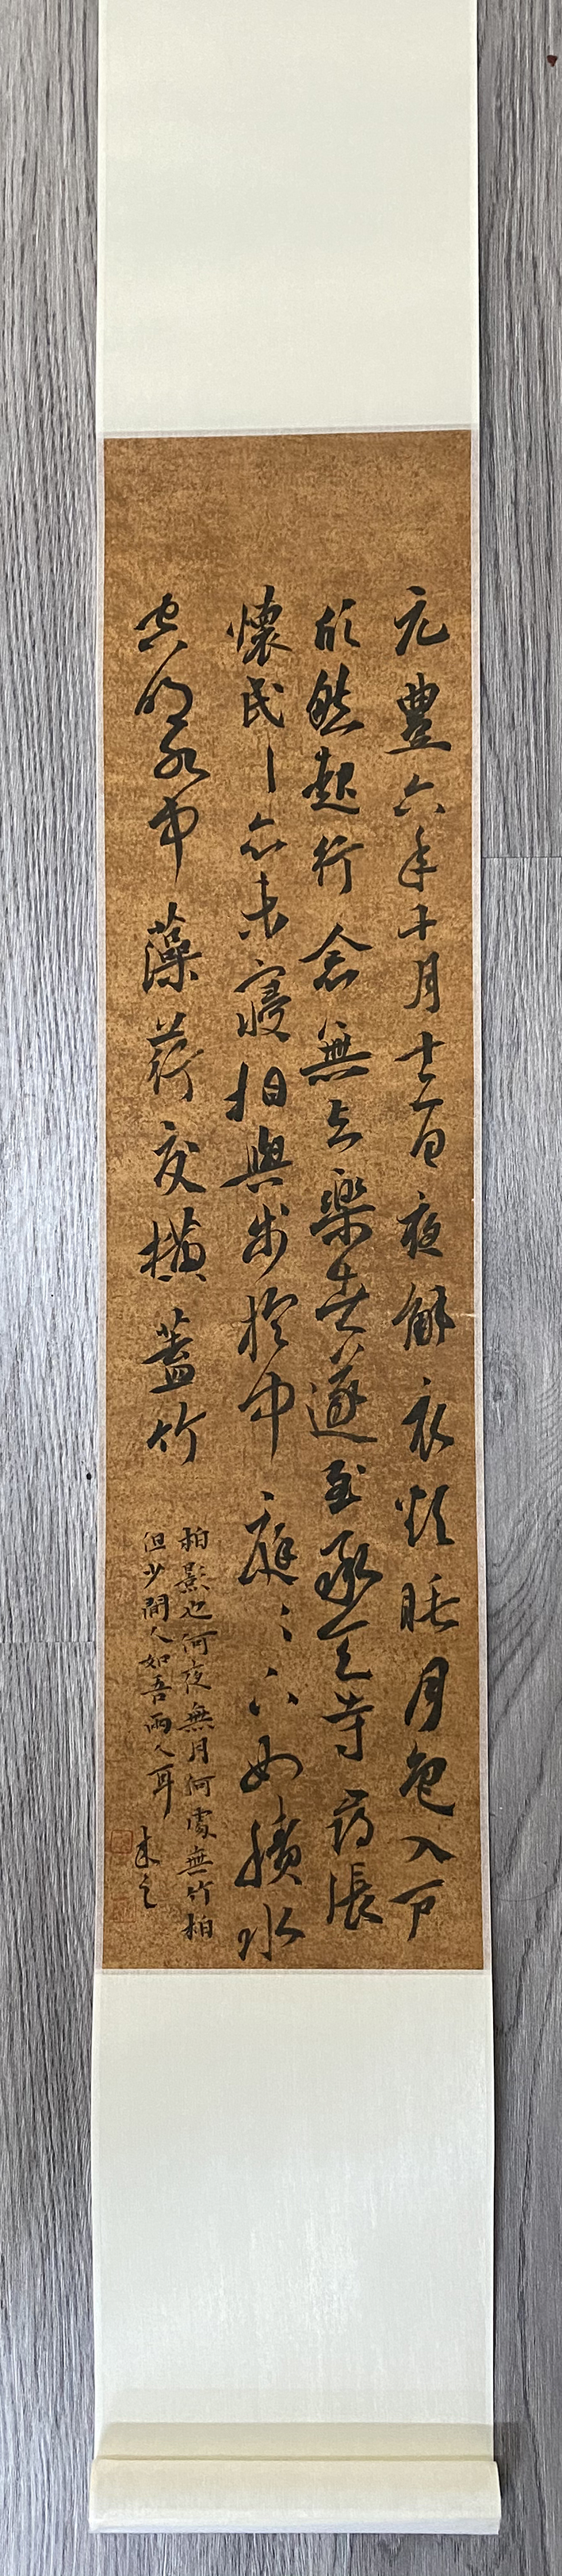 元豐六年十月十二日夜解衣欲睡月色入戶
欣然起行念無与樂者遂至承天寺尋張
懷民〻亦未寢相與步於中庭〻下如積水
空明水中藻荇交橫蓋竹
柏影也何夜無月何處無竹柏
但少閒人如吾兩人耳